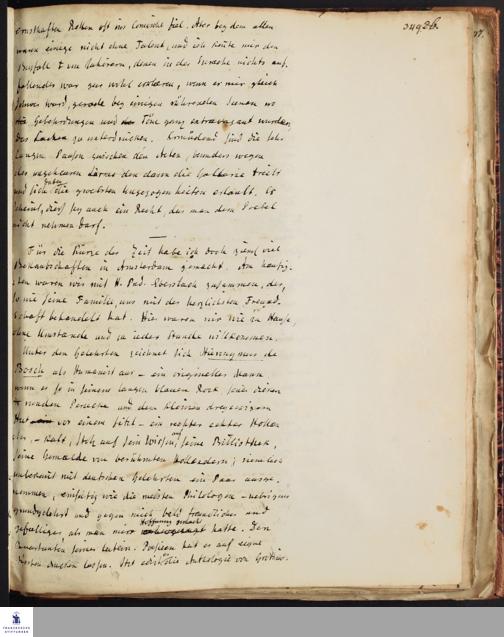 349 2b.
97.
ernsthaften Rollen oft ins Comische fiel. Aber bey dem allen
waren einige nicht ohne Talent, und ich konte mir den
Beyfall von Zuhörern, denen in der Sprache nichts auf-
fallendes war gar wohl erklären, wenn er mir gleich
schwer ward, gerade bey einigen rührenden Scenen wo
Gebehrdungen und Töne ganz extravagant wurden,
das Lachen zu unterdrücken. Ermüdend sind die sehr
langen Pausen zwischen den Acten, besonders wegen
des ungeheuren Lärms den dann die Gallerie treibt
und sich die gröbsten Ungezogenheiten erlaubt. Es
scheint, dies sey auch ein Recht, das man dem Poebel
nicht nehmen darf.
Für die Kürze der Zeit habe ich doch ziemlich viel
Bekanntschaften in Amsterdam gemacht. Am häufig-
sten waren wir mit H. zusammen, der,
so wie seine Familie, uns mit der herzlichsten Freund-
schaft behandelt hat. Hier waren wir wie zu Hause,
ohne Umstände und zu jeder Stunde willkommen.
Unter den Gelehrten zeichnet sich Hieronymus de
Bosch als Humanist aus – ein originelles Mann
wenn er so in seinem langen blauen Rock
runden Perücke und dem kleinen dreyeckigen
Hut vor einem sitzt – ein rechter echter Hollän
der, – kalt, stolz auf sein Wissen, auf seine Bibliothek,
seine Gemälde von berühmten Holländern; ziemlich
unbekannt mit deutschen Gelehrten ein Paar ausge-
nommen, einseitig wie die meisten Philologen – uebrigens
grundgelehrt und gegen mich freundlicher und
gefälliger, als man mir Hoffnung gemacht hatte. Den
seiner latein. Poesieen hat er auf eigne
Kosten drucken lassen. Itzt edirt die Anthologie von Grotius.
FRANCKESCHE STIFTUNGEN